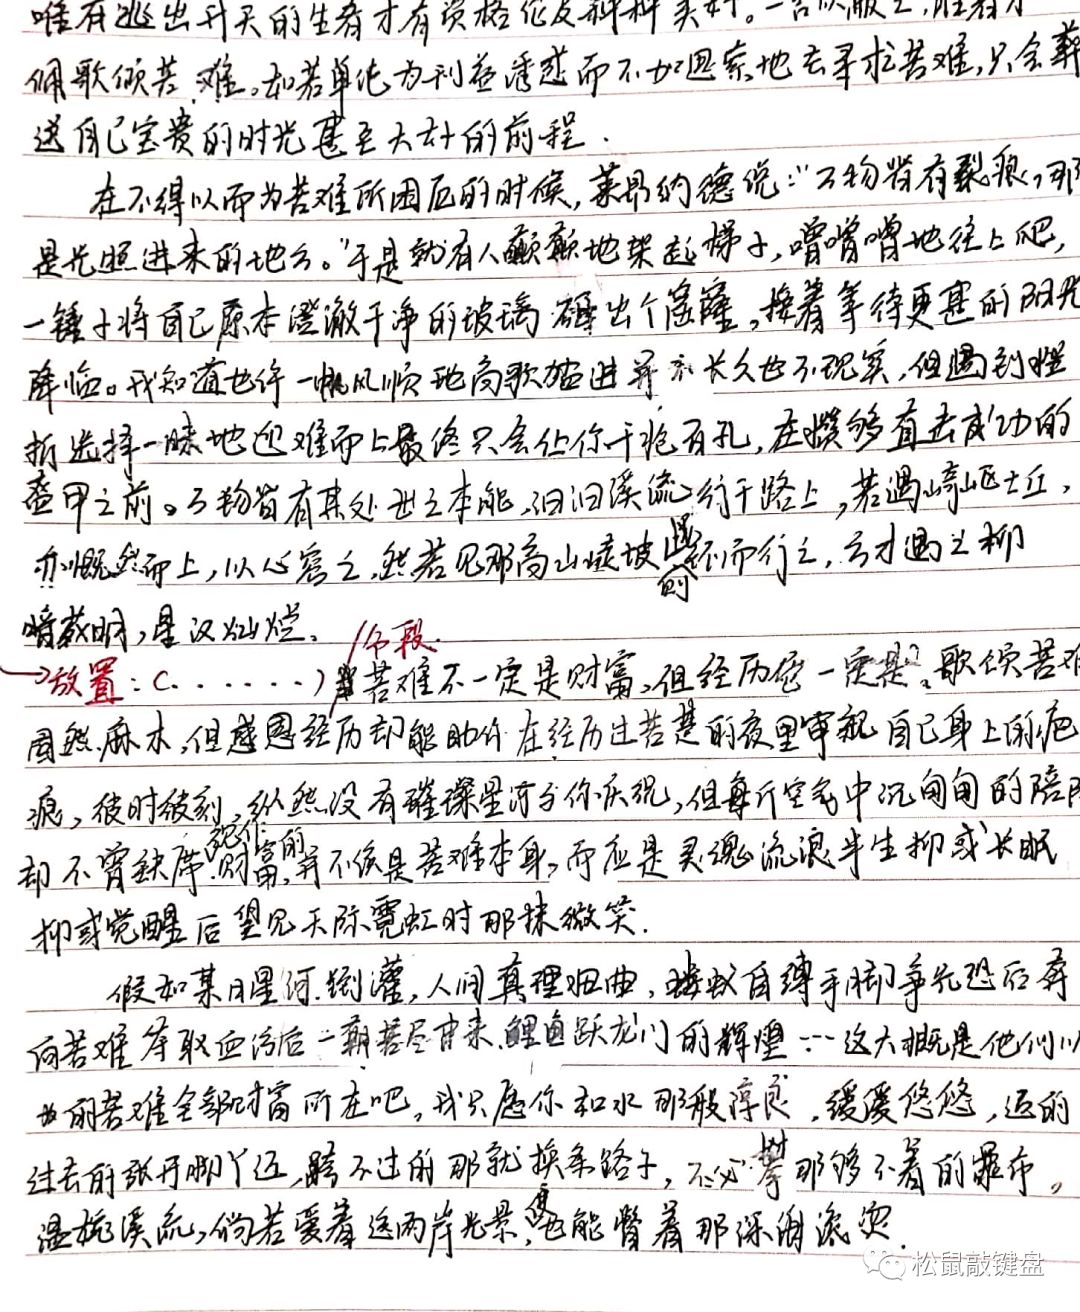 唯有逃出升天的生者才有资格论及种种美好。一言以蔽之,胜者才
佩歌颂苦难。如若单纯为利益诱惑而不加思索地去寻求苦难,只会葬
送自己宝贵的时光甚至大好的前程.
在不得以而为苦难所困厄的时候,莱昂纳德说:"万物皆有裂痕,那
是光照进来的地方。"于是就有人颤颤地架起梯子,噌噌噌地往上爬,
一锤子将自己原本澄澈干净的玻璃砸出个窟窿,接着等待更甚的阳光
降临。我知道也许一帆风顺地高歌猛进并不长久也不现实,但遇到挫
折选择一昧地迎难而上最终只会让你千疮百孔,在能够直击成功的
盔甲之前。万物皆有其处世之本能,汩汩溪流行于路上,若遇崎岖土丘,
亦慨然而上,以心容之,然若见那高山峻坡而行之,方才遇之柳
暗花明,星汉灿烂.
分段.
放置:(......)苦难不一定是财富,但经历一定是。歌颂苦难
固然麻木,但感恩经历却能助你在经历过苦楚的夜里审视自己身上的疤
痕,彼时彼刻,纵然没有璀璨星河为你庆祝,但每斤空气中沉甸甸的陪
却不曾缺席.祝作财富的,并不该是苦难本身,而应是灵魂流浪半生抑或长眠
抑或觉醒后望见天际霓虹时那抹微笑.
假如某日星河倒灌,人间真理扭曲,蝼蚁自缚手脚争先恐后奔
向苦难夺取血污后一朝苦尽甘来,鲤鱼跃龙门的辉煌……这大概是他们以
为的苦难全部财富所在吧,我只愿你和水那般淳良,缓缓悠悠,迈的
过去的张开脚丫迈,跨不过的那就换条路子,不必攀那够不着的瀑布,
温婉溪流,倘若爱着这两岸光景,也能瞥着那深涧流
松鼠敲键盘